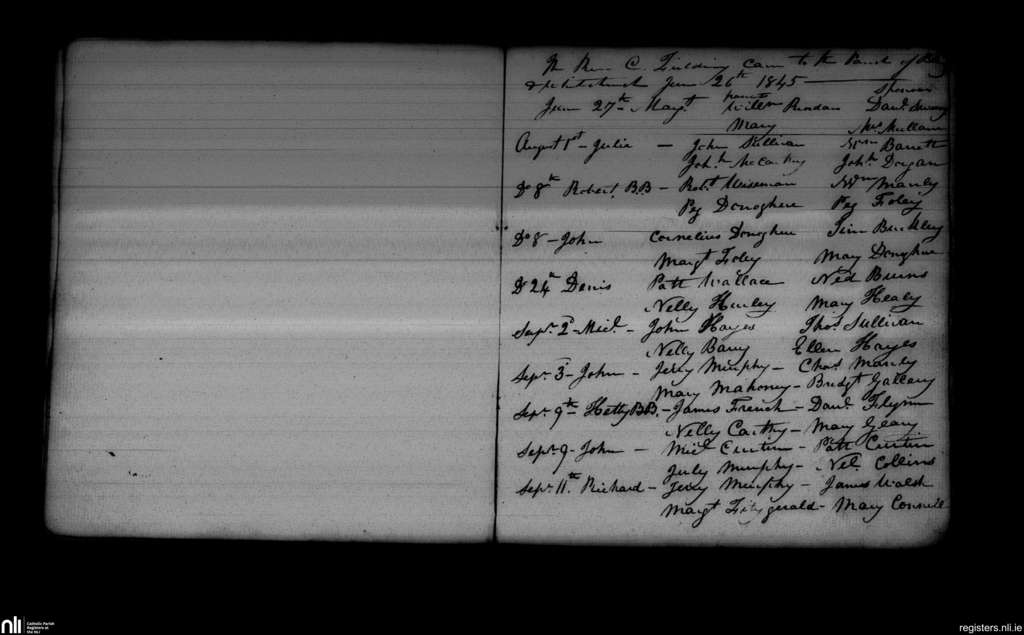 The Rev. C. Fielding Came to the Parish of
June 26th 1845
Parents Sponsors
June 27th Margt Willm Riordan Danl
Mary Mrs Mullane
August 1st - Julia - John Sullivan Wm Barrett
Joha McCarthy Joha Dorgan
Do 8th Robert B.B - Robt Wiseman Wm Manly
Peg Donoghue Peg Foley
Do 8 - John Cornelius Donoghue Tim Buckley
Margt Foley Mary Donoghue
Do 24th Denis Patt Wallace Ned Burns
Nelly Hurley Mary Healy
Sepr 2d - Michl - John Hayes Thos Sullivan
Nelly Barry Ellen Hayes
Sepr 3d - John - Jerry Murphy - Chas Manly
Mary Mahoney - Bridgt Gallavy
Sepr 9th - Hetty B.B. - James French - Danl Flynn
Nelly Carthy - Mary Geary
Sepr 9 - John - Michl Curtin - Patt Curtin
July Murphy - Nel. Collins
Sepr 11th Richard - Jerry Murphy - James Walsh
Margt Fitzgerald - Mary Connell
nli
Catholic Parish
Registers at
the NLI
registers.nli.ie